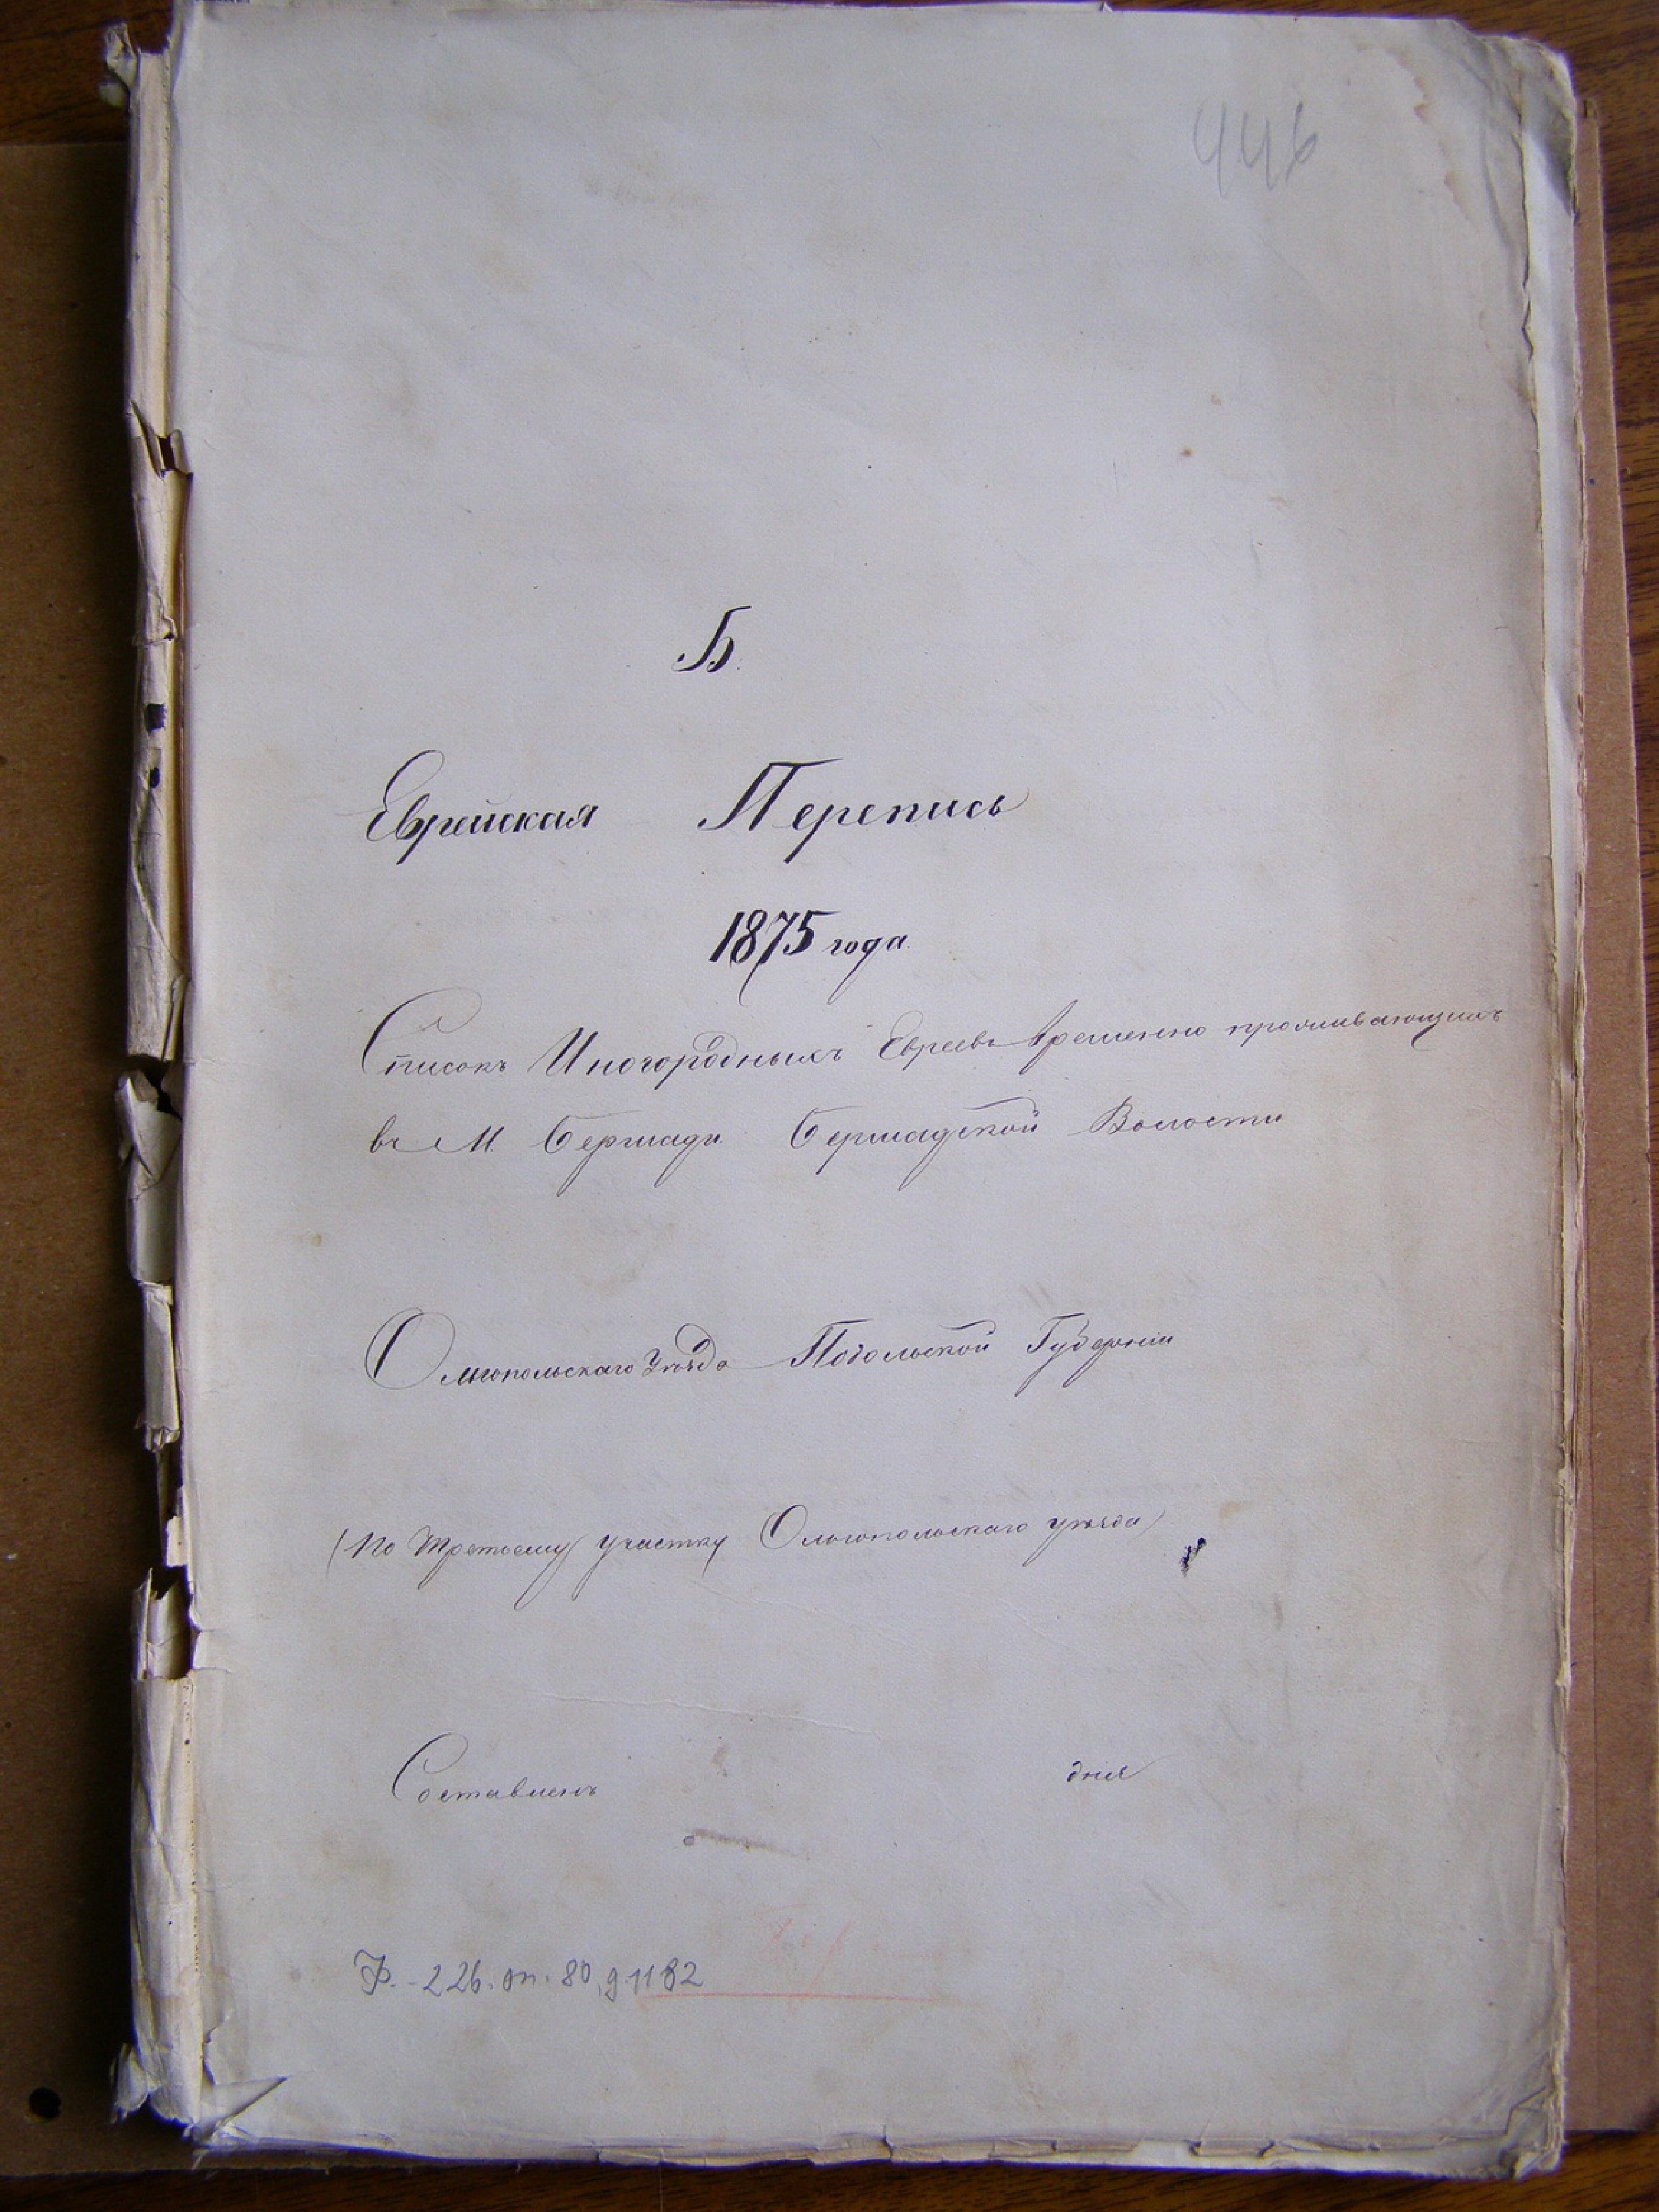 446
Б.
Еврейская Перепись
1875 года
Списокъ Иногородныхъ Евреевъ временно проживающихъ
въ М. Бершади Бершадской Волости
Ольгопольскаго Уѣзда Подольской Губерніи
(По третьему участку Ольгопольскаго уѣзда)
Составленъ дня
Ф. - 226. оп. 80, д 1182